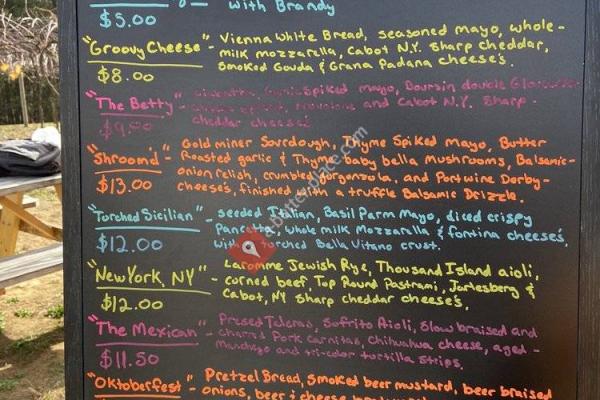 with Brandy
$5.00
"Groovy Cheese" - Vienna White Bread, seasoned mayo, whole-
milk mozzarella, Cabot N.Y. Sharp cheddar,
$8.00 smoked Gouda & Grana Padana cheese's.
"The Betty" - Spiked mayo, Boursin double
$9.00 and Cabot N.Y. Sharp -
cheddar cheese's
"Shroom'd" - Gold miner Sourdough, Thyme Spiked mayo, Butter
Roasted garlic & Thyme baby bella Mushrooms, Balsamic-
$13.00 onion relish, crumbled gorgonzola, and Portwine Derby-
cheese's, finished with a truffle Balsamic Drizzle.
"Torched Sicilian" - seeded Italian, Basil Parm Mayo, diced crispy
Pancetta, whole milk Mozzarella & fontina cheese's,
$12.00 with a torched Bella Vitano crust.
"New York, NY" - Laromme Jewish Rye, Thousand Island aioli,
- corned beef, Top Round Pastrami, Jarlesberg &
$12.00 Cabot, NY Sharp cheddar cheese's,
"The Mexican" - Presed Teleras, Sofrito Aioli, Slow braised and
charred Pork Carnitas, Chihuahua cheese, aged -
$11.50 Manchego and tri-color tortilla strips.
"Oktoberfest" - Pretzel Bread, Smoked beer mustard, beer braised
onions, beer & cheese